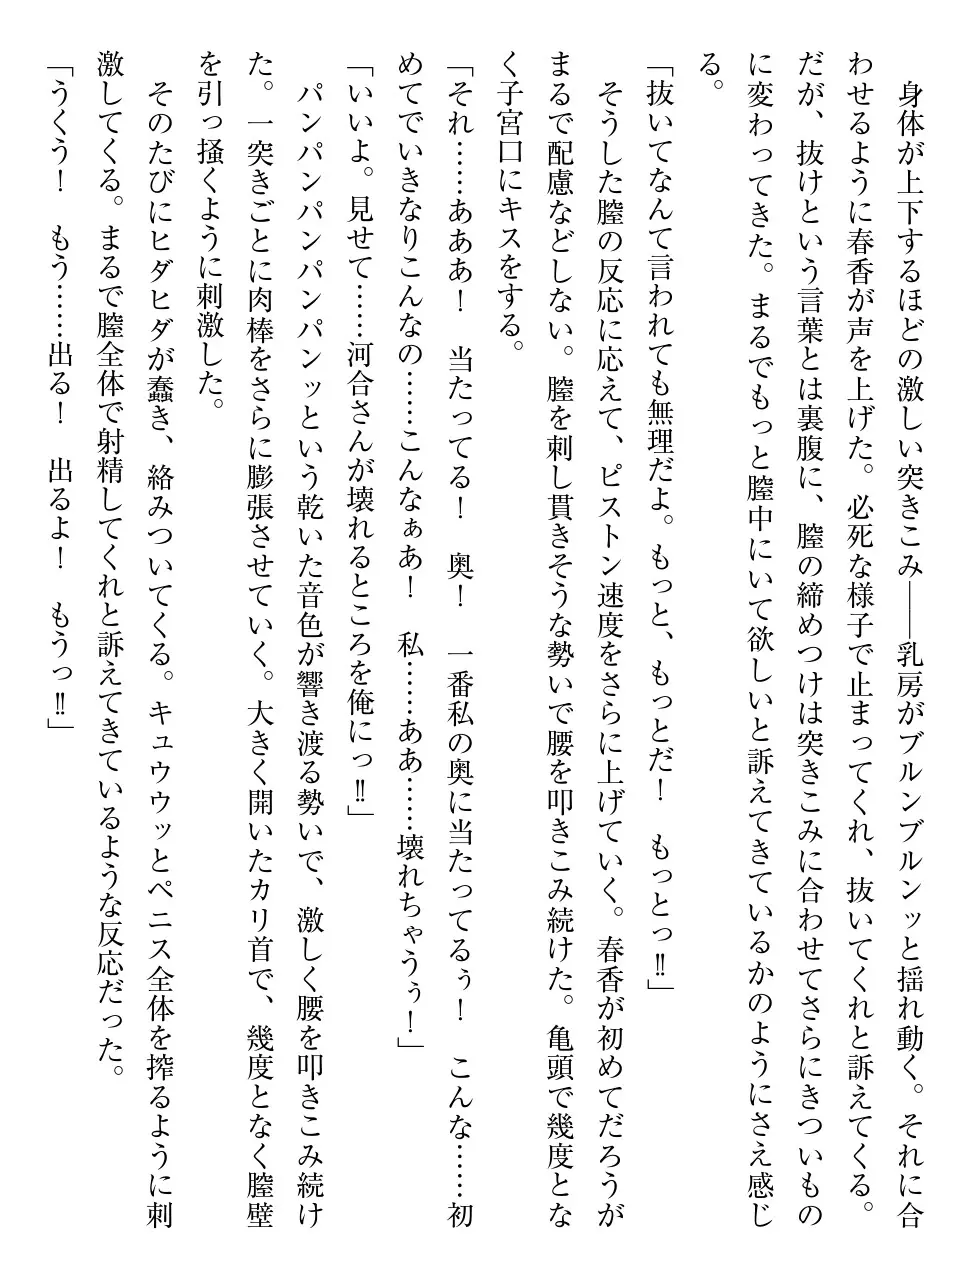 身体が上下するほどの激しい突きこみ――乳房がブルンブルンッと揺れ動く。それに合
わせるように春香が声を上げた。必死な様子で止まってくれ、抜いてくれと訴えてくる。
だが、抜けという言葉とは裏腹に、膣の締めつけは突きこみに合わせてさらにきついもの
に変わってきた。まるでもっと膣中にいて欲しいと訴えてきているかのようにさえ感じ
る。
「抜いてなんて言われても無理だよ。もっと、もっとだ！　もっとっ‼」
そうした膣の反応に応えて、ピストン速度をさらに上げていく。春香が初めてだろうが
まるで配慮などしない。膣を刺し貫きそうな勢いで腰を叩きこみ続けた。亀頭で幾度とな
く子宮口にキスをする。
「それ……あああ！　当たってる！　奥！　一番私の奥に当たってるぅ！　こんな……初
めてでいきなりこんなの……こんなぁあ！　私……ああ……壊れちゃうぅ！」
「いいよ。見せて……河合さんが壊れるところを俺にっ‼」
パンパンパンパンパンッという乾いた音色が響き渡る勢いで、激しく腰を叩きこみ続け
た。一突きごとに肉棒をさらに膨張させていく。大きく開いたカリ首で、幾度となく膣壁
を引っ掻くように刺激した。
そのたびにヒダヒダが蠢き、絡みついてくる。キュウウッとペニス全体を搾るように刺
激してくる。まるで膣全体で射精してくれと訴えてきているような反応だった。
「うくう！　もう……出る！　出るよ！　もうっ‼」